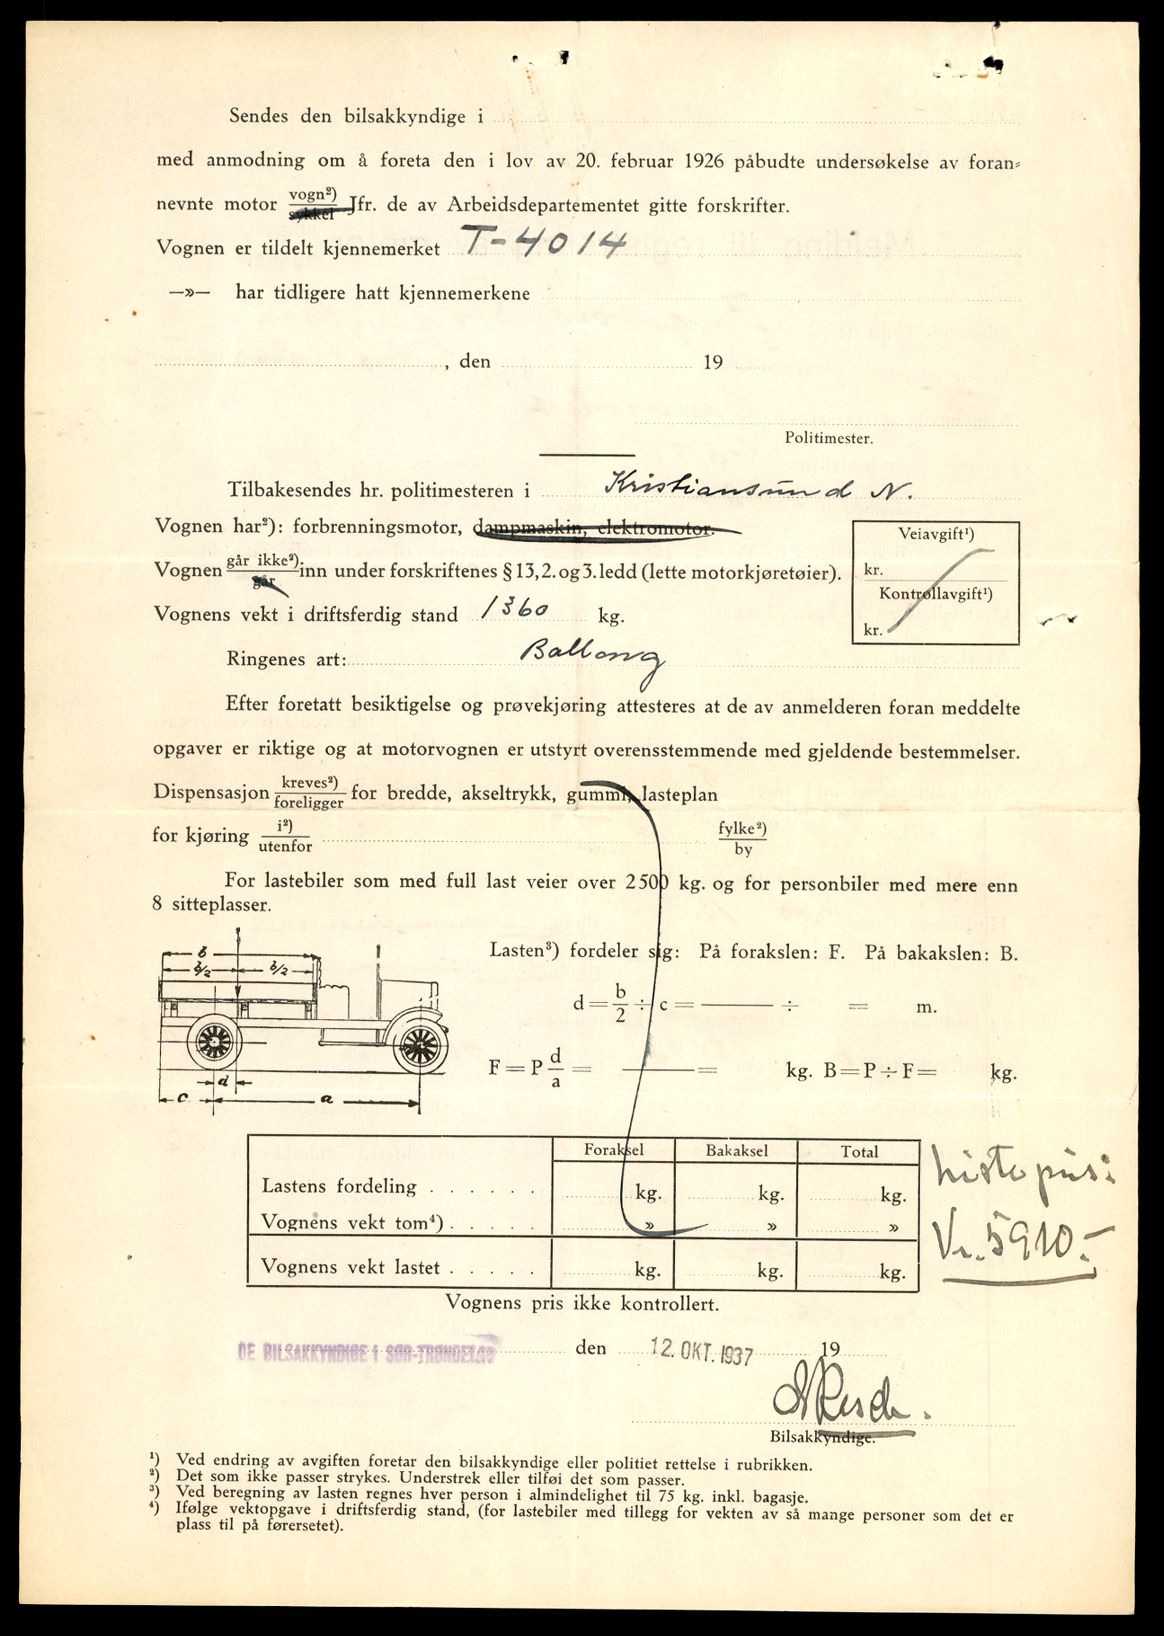 Sendes den bilsakkyndige i
med anmodning om å foreta den i lov av 20. februar 1926 påbudte undersøkelse av foran=
nevnte motor vogn²) sykkel Jfr. de av Arbeidsdepartementet gitte forskrifter.
Vognen er tildelt kjennemerket T-4014
—»— har tidligere hatt kjennemerkene
, den 19
Politimester.
Tilbakesendes hr. politimesteren i Kristiansund N.
Vognen har²): forbrenningsmotor, dampmaskin, elektromotor.
Veiavgift¹)
kr.
Kontrollavgift¹)
kr.
Vognen går ikke²) går inn under forskriftenes § 13, 2. og 3. ledd (lette motorkjøretøier).
Vognens vekt i driftsferdig stand 1360 kg.
Ringenes art: Ballong
Efter foretatt besiktigelse og prøvekjøring attesteres at de av anmelderen foran meddelte
opgaver er riktige og at motorvognen er utstyrt overensstemmende med gjeldende bestemmelser.
Dispensasjon kreves²) foreligger for bredde, akseltrykk, gummi, lasteplan
for kjøring i²) utenfor fylke²) by
For lastebiler som med full last veier over 2500 kg. og for personbiler med mere enn
8 sitteplasser.
b
b/2 b/2
d
c a
Lasten³) fordeler sig: På forakslen: F. På bakakslen: B.
d = b/2 ÷ c = —— ÷ = m.
F = P d/a = —— = kg. B = P ÷ F = kg.
Foraksel Bakaksel Total
Lastens fordeling . . . . . . kg. kg. kg.
Vognens vekt tom⁴) . . . . . » » »
Vognens vekt lastet . . . . . kg. kg. kg.
Listepris:
Kr. 5910.-
Vognens pris ikke kontrollert.
DE BILSAKKYNDIGE I SØR-TRØNDELAG den 12. OKT. 1937 19
Bilsakkyndige.
¹) Ved endring av avgiften foretar den bilsakkyndige eller politiet rettelse i rubrikken.
²) Det som ikke passer strykes. Understrek eller tilføi det som passer.
³) Ved beregning av lasten regnes hver person i almindelighet til 75 kg. inkl. bagasje.
⁴) Ifølge vektopgave i driftsferdig stand, (for lastebiler med tillegg for vekten av så mange personer som det er
plass til på førersetet).